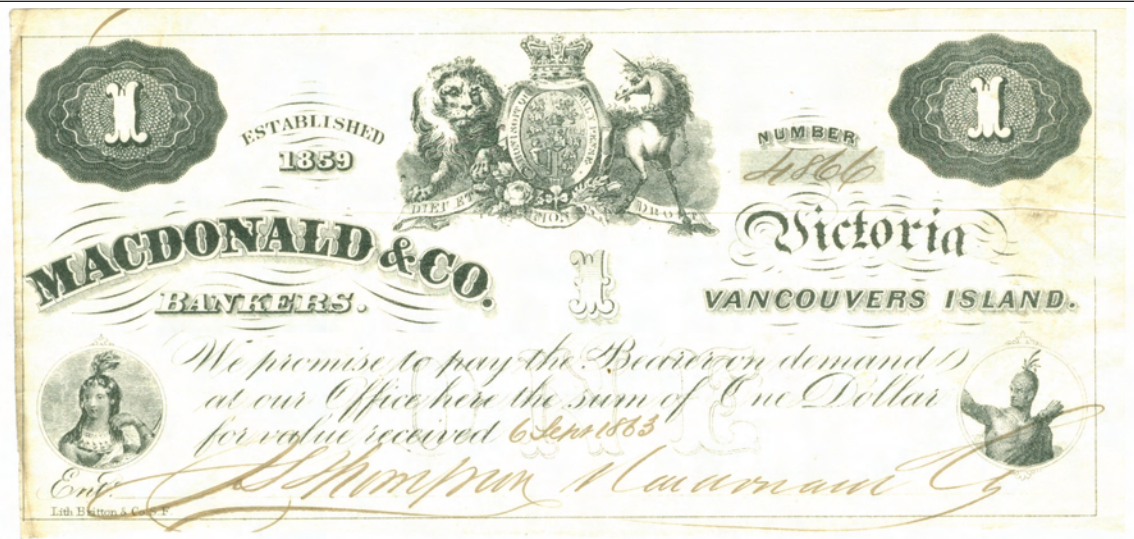 1 1
ESTABLISHED
1859
DIEU ET MON DROIT
NUMBER
4866
MACDONALD & CO.
BANKERS.
1
Victoria
VANCOUVERS ISLAND.
We promise to pay the Bearer on demand
at our Office here the sum of One Dollar
for value received 6 Sept 1863
ONE
Entd. JSThompson Macdonald Co
Lith Britton & Co. S. F.